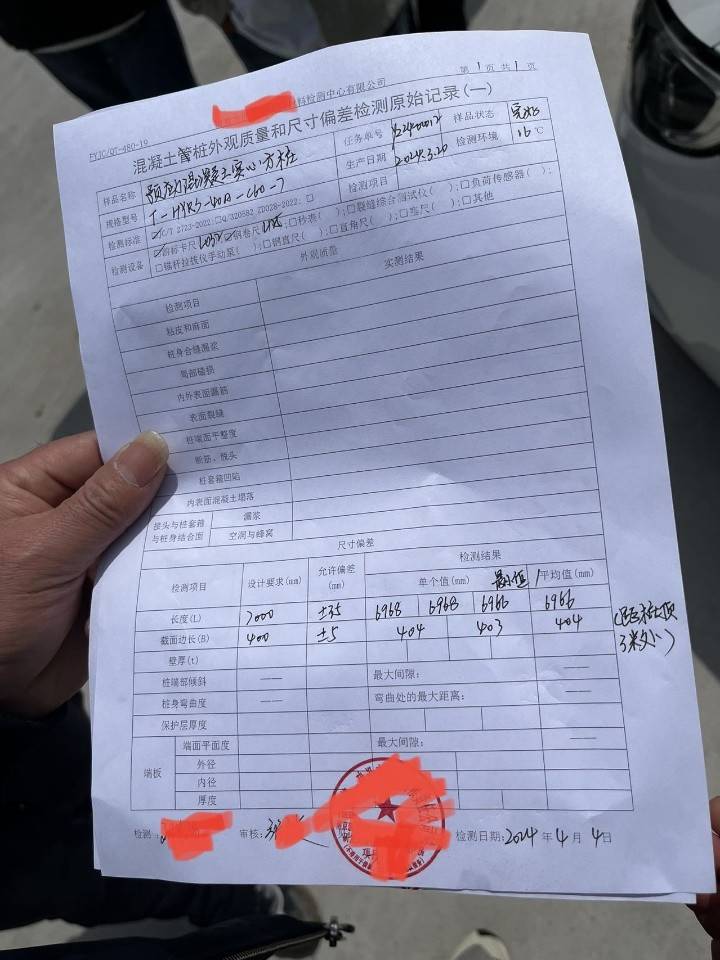 料检测中心有限公司
第 1 页 共 1 页
FYJC/QT-480-19
混凝土管桩外观质量和尺寸偏差检测原始记录(一)
样品名称 预应力混凝土实心方桩 任务单号 样品状态 完好
规格型号 生产日期 2024.3.20 检测环境 16 ℃
检测标准 ☑JC/T 2723-2022;□Q/320582 ZD028-2022;□ 检测项目
检测设备 ☑游标卡尺 ☑钢卷尺 □秒表( );□裂缝综合测试仪( );□负荷传感器( );
□锚杆拉拔仪手动泵( );□钢直尺( );□直角尺( );□塞尺( );□其他
外观质量
检测项目 实测结果
粘皮和麻面
桩身合缝漏浆
局部磕损
内外表面露筋
表面裂缝
桩端面平整度
断筋、脱头
桩套箍凹陷
内表面混凝土塌落
接头与桩套箍与桩身结合面 漏浆
空洞与蜂窝
尺寸偏差
检测项目 设计要求(mm) 允许偏差(mm) 检测结果
单个值(mm) 最小值/平均值(mm)
长度(L) 7000 ±35 6968 6968 6966 6966
截面边长(B) 400 ±5 404 403 404 (距桩顶3米处)
壁厚(t)
桩端部倾斜 —— 最大间隙: ——
桩身弯曲度 —— 弯曲处的最大距离: ——
保护层厚度
端板 端面平面度 最大间隙: ——
外径
内径
厚度
检测: 审核: 检测日期:2024 年 4 月 4 日